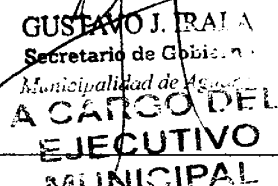 GUSTAVO J. IRALA
Secretario de
Municipalidad de
A CARGO DEL
EJECUTIVO
MUNICIPAL